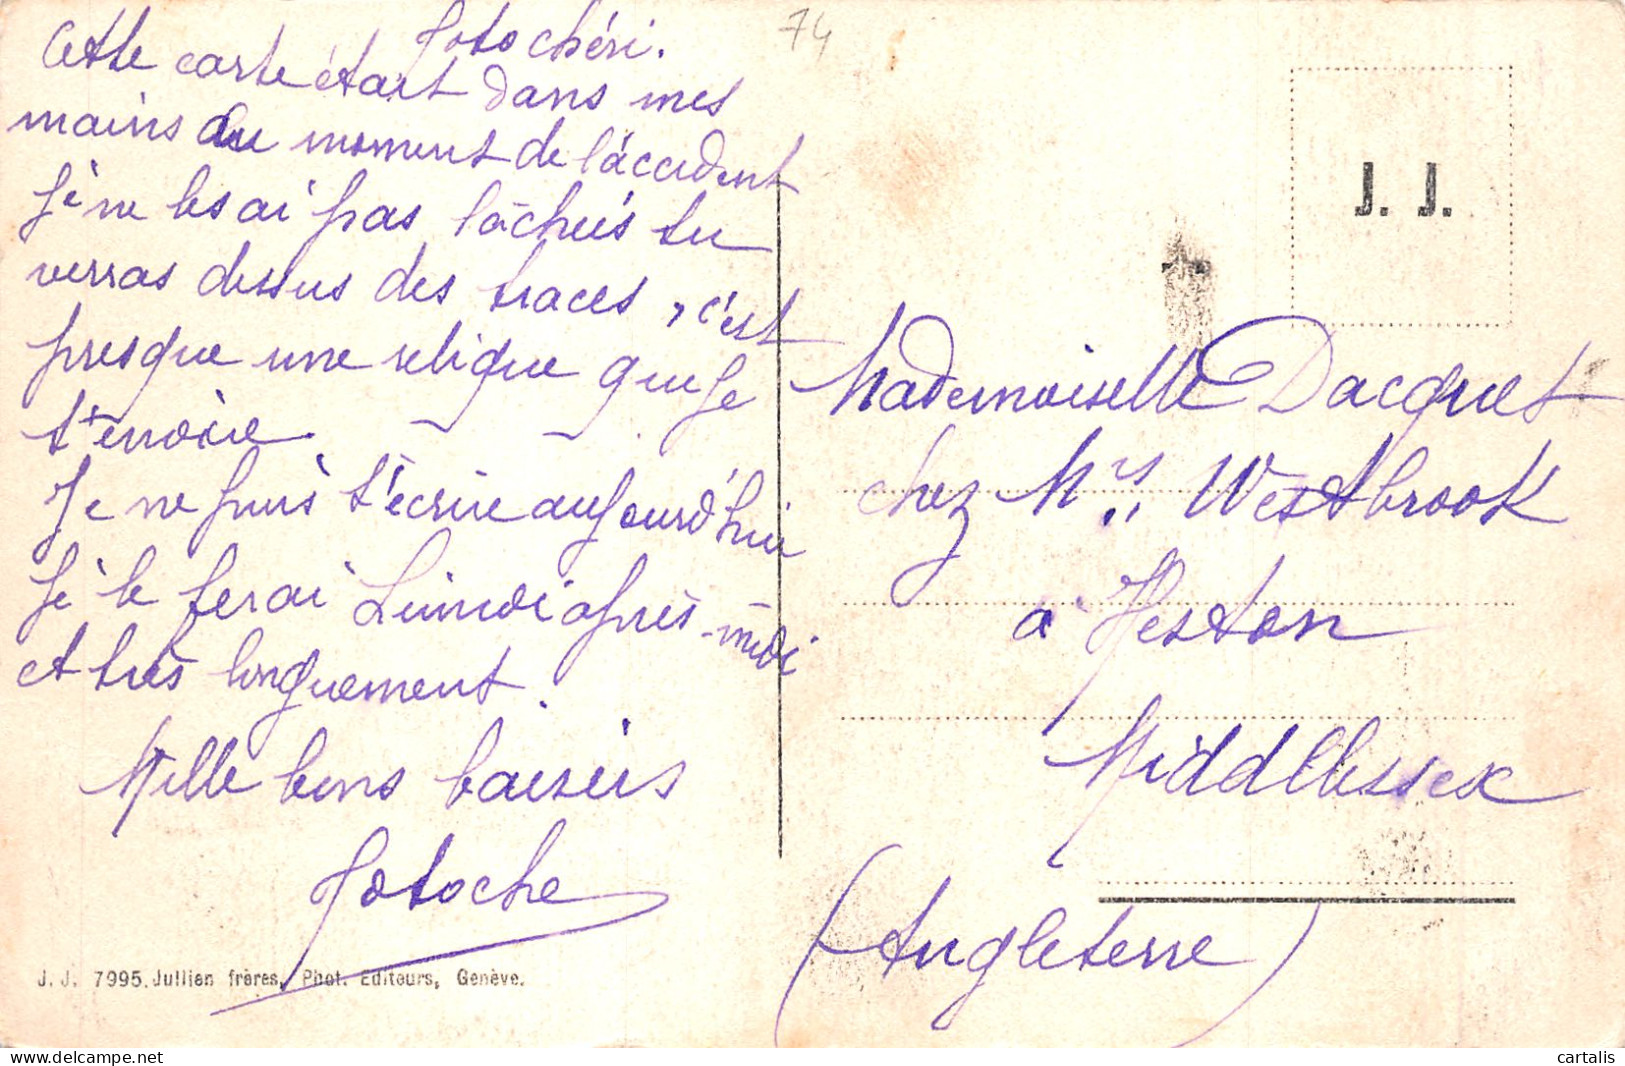 74
Totochéri.
Cette carte était dans mes
mains au moment de l'accident
je ne les ai pas lâchées tu
verras dessus des traces, c'est
presque une relique que je
t'envoie.
Je ne puis t'écrire aujourd'hui
je le ferai Lundi après-midi
et très longuement.
Mille bons baisers
Totoche
J. J. 7995. Jullien frères, Phot. Editeurs, Genève.
J. J.
Mademoiselle Dacquet
chez Mrs Westbrook
à Heston
Middllessex
(Angleterre)
cartalis
www.delcampe.net